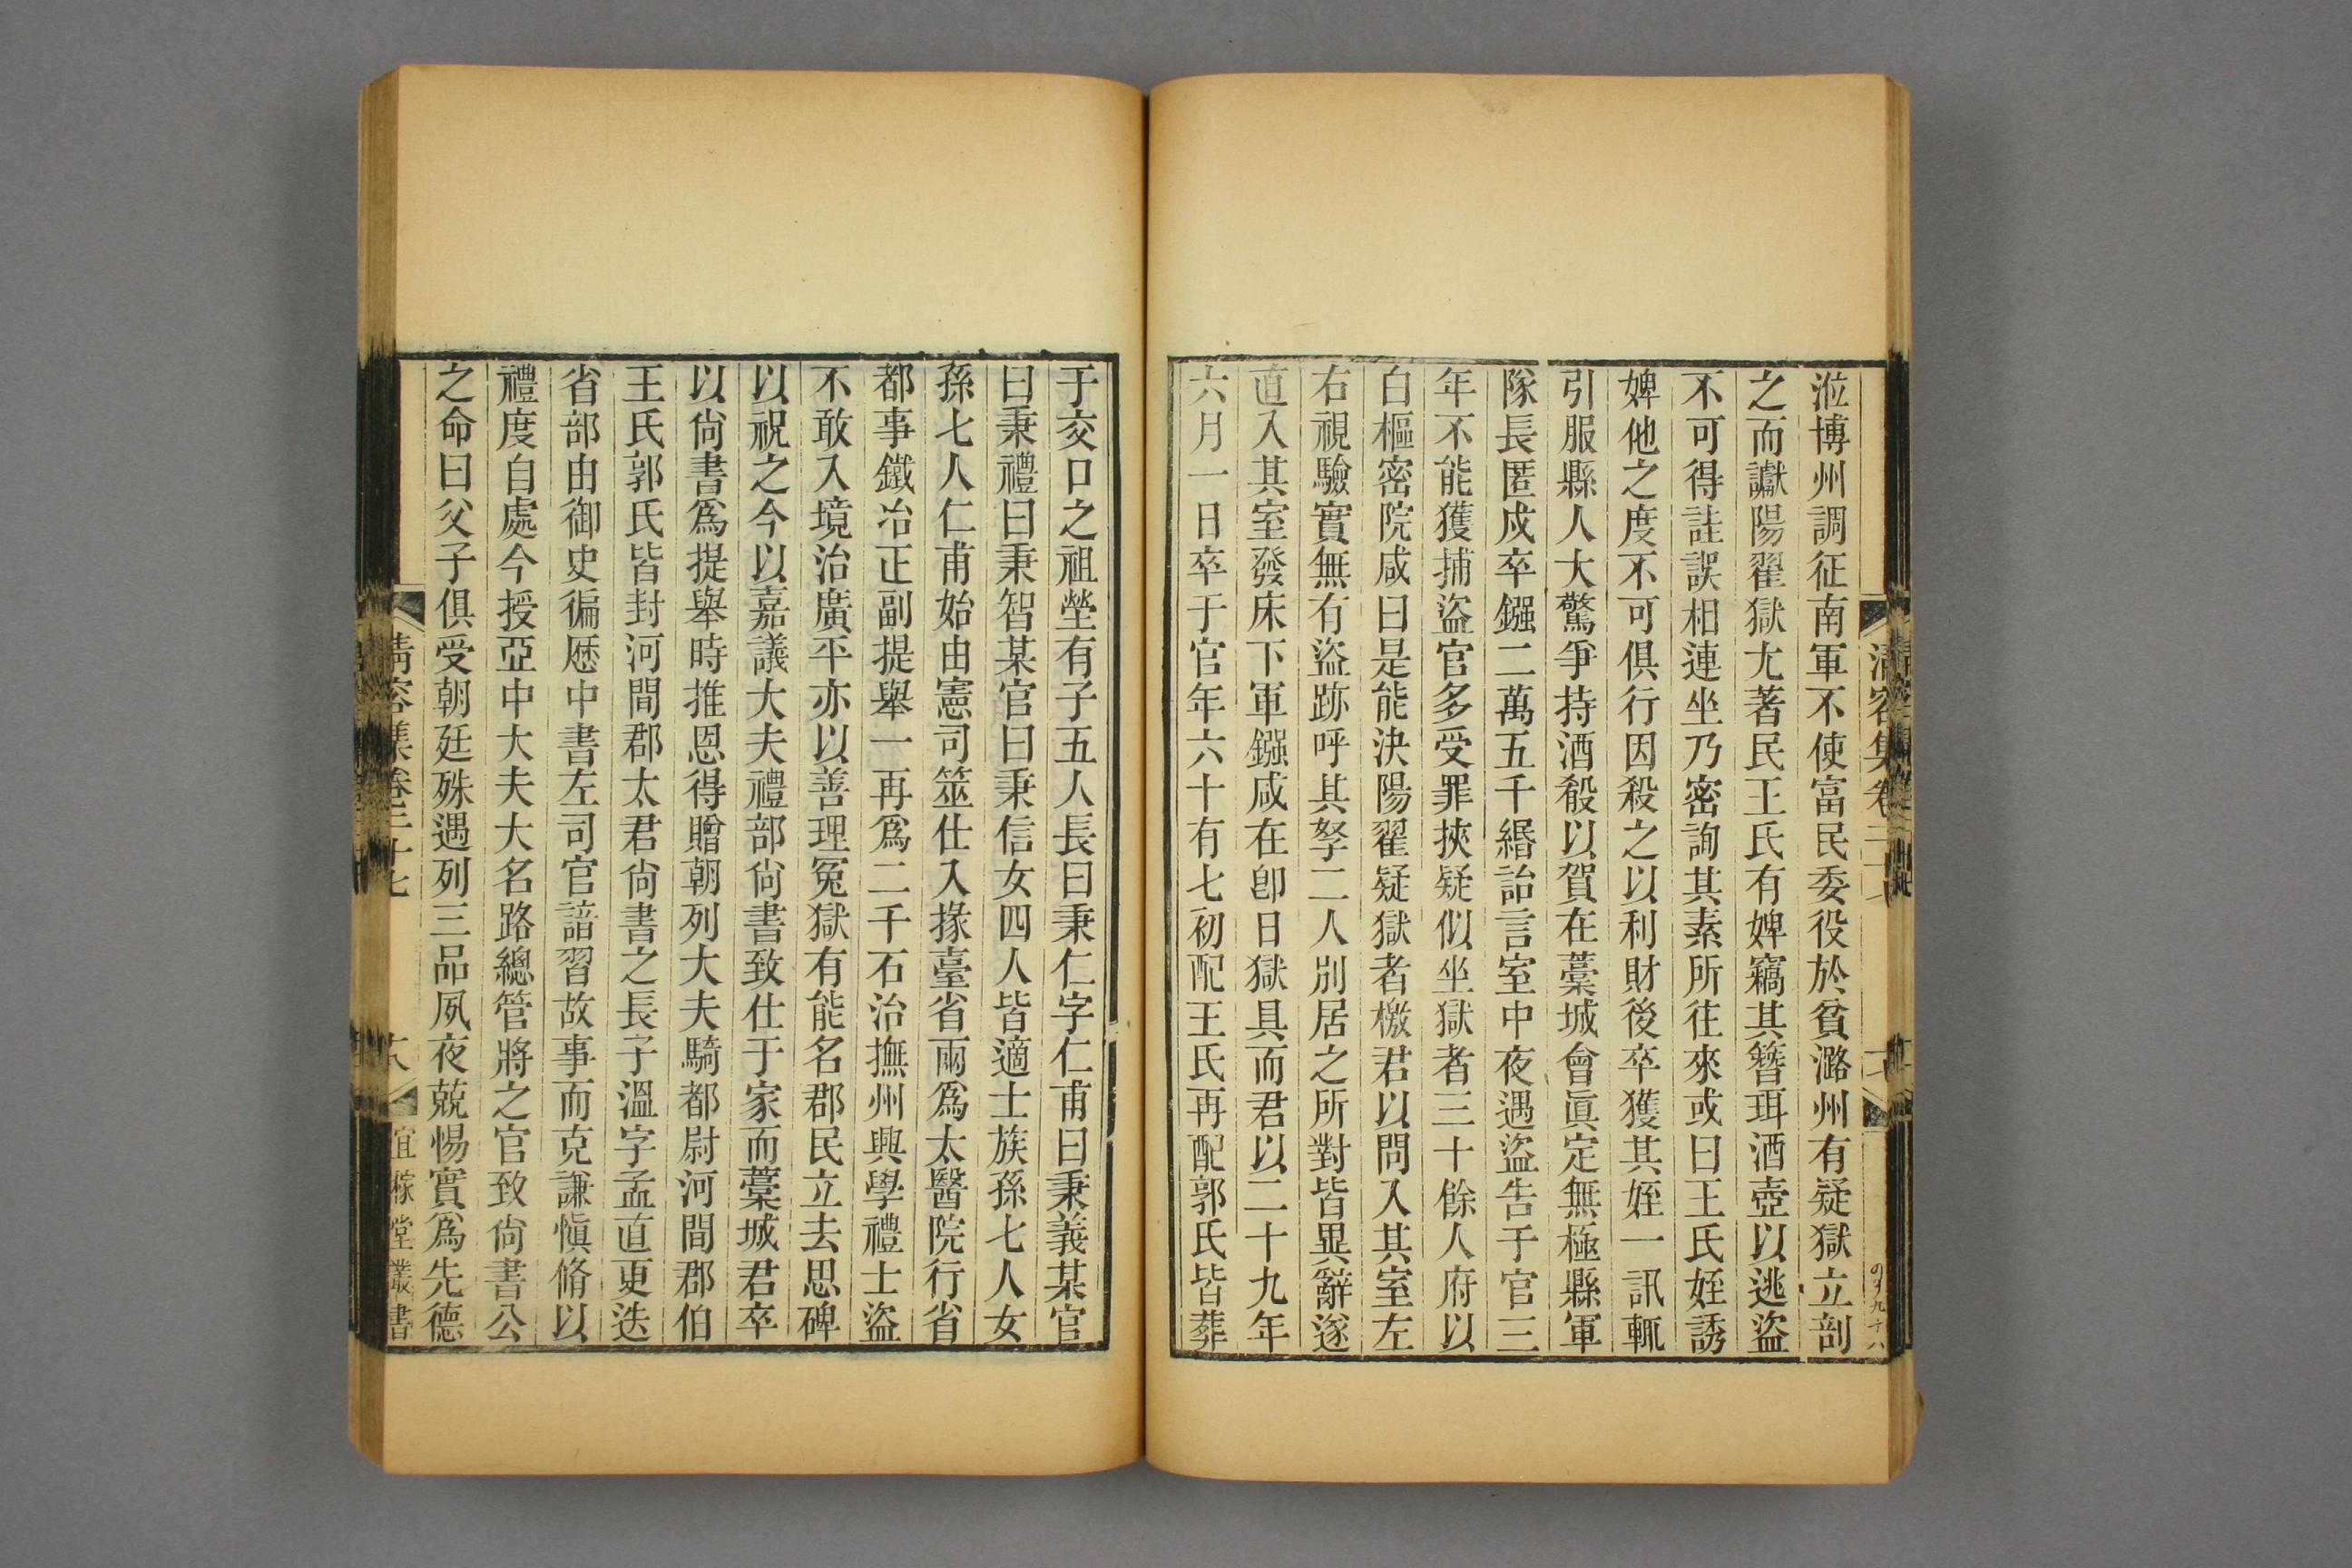 涖博州調征南軍不使富民委役於貧潞州有疑獄立剖
之而讞陽翟獄尤著民王氏有婢竊其簪珥酒壺以逃盜
不可得詿誤相連坐乃密詢其素所往來或曰王氏姪誘
婢他之度不可俱行因殺之以利財後卒獲其姪一訊輒
引服縣人大驚爭持酒殽以賀在藁城會眞定無極縣軍
隊長匿戍卒鏹二萬五千緡詒言室中夜遇盜告于官三
年不能獲捕盜官多受罪挾疑似坐獄者三十餘人府以
白樞密院咸曰是能決陽翟疑獄者檄君以問入其室左
右視驗實無有盜跡呼其孥二人別居之所對皆異辭遂
直入其室發床下軍鏹咸在卽日獄具而君以二十九年
六月一日卒于官年六十有七初配王氏再配郭氏皆葬
于交口之祖塋有子五人長曰秉仁字仁甫曰秉義某官
曰秉禮曰秉智某官曰秉信女四人皆適士族孫七人女
孫七人仁甫始由憲司筮仕入掾臺省兩爲太醫院行省
都事鐵冶正副提舉一再爲二千石治撫州興學禮士盜
不敢入境治廣平亦以善理冤獄有能名郡民立去思碑
以祝之今以嘉議大夫禮部尙書致仕于家而藁城君卒
以尙書爲提舉時推恩得贈朝列大夫騎都尉河間郡伯
王氏郭氏皆封河間郡太君尙書之長子溫字孟直更迭
省部由御史徧歷中書左司官諳習故事而克謙愼脩以
禮度自處今授亞中大夫大名路總管將之官致尙書公
之命曰父子俱受朝廷殊遇列三品夙夜兢惕實爲先德
清容集卷二十七
六
宜稼堂叢書